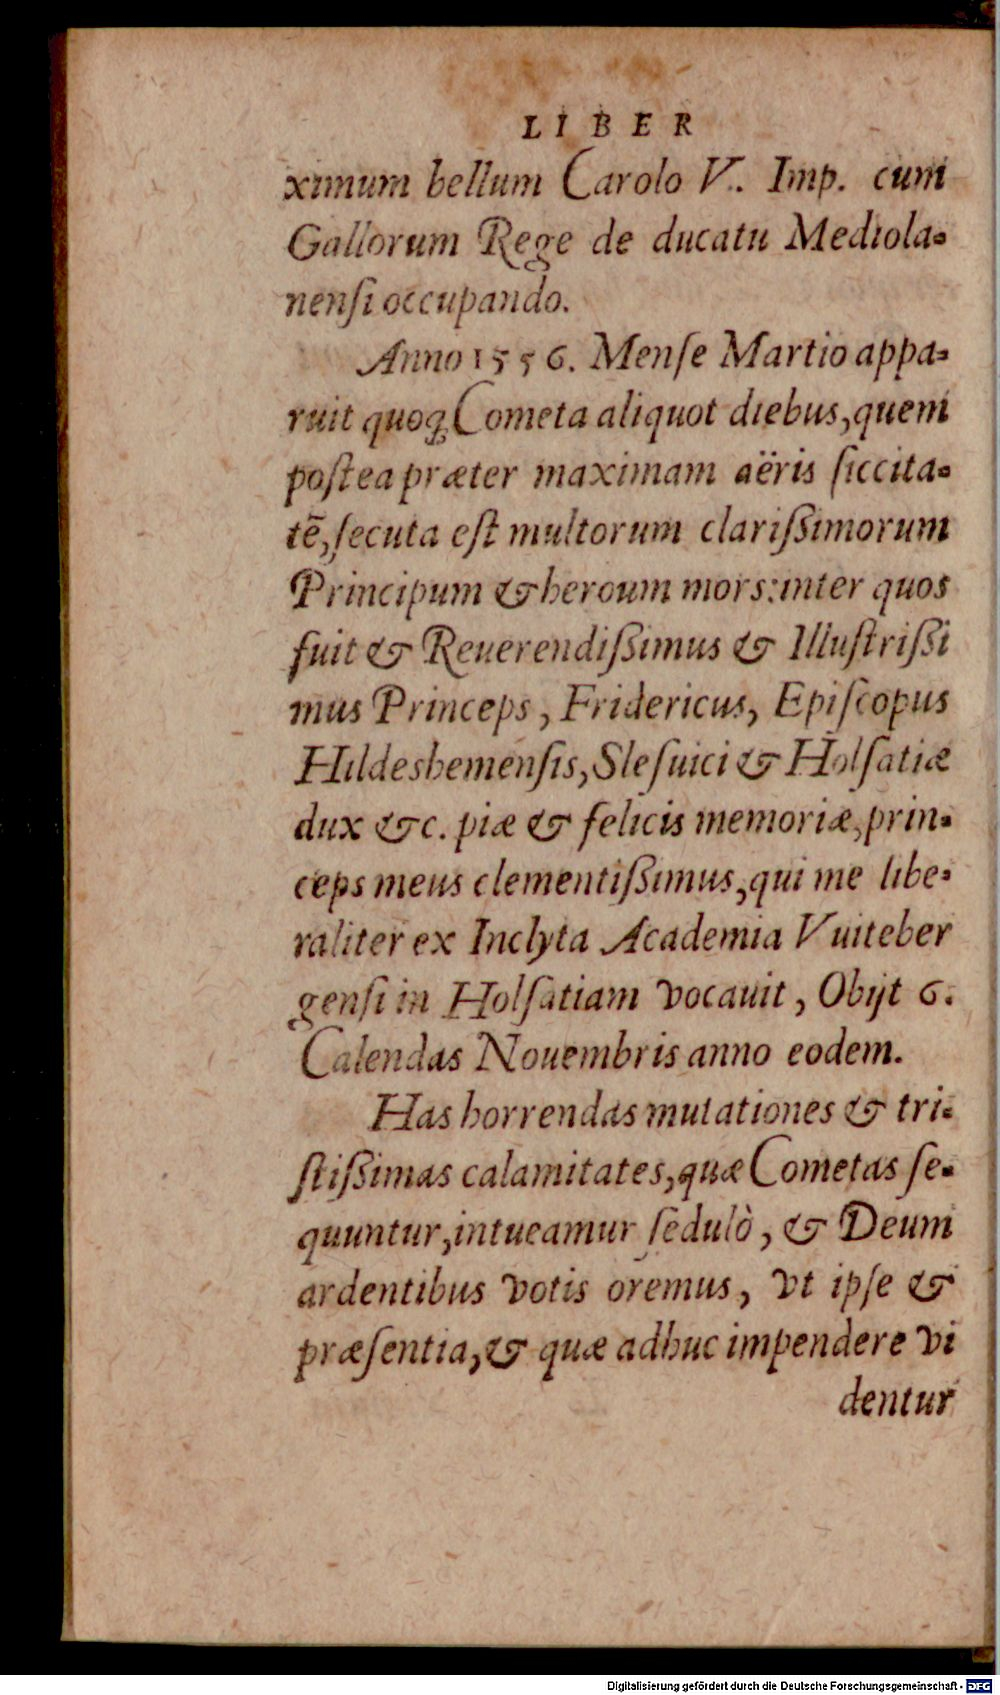 LIBER
ximum bellum Carolo V. Imp. cum
Gallorum Rege de ducatu Mediola-
nenſi occupando.
Anno 1556. Menſe Martio appa-
ruit quoq; Cometa aliquot diebus, quem
poſtea præter maximam aëris ſiccita-
tē, ſecuta eſt multorum clariſſimorum
Principum & heroum mors: inter quos
fuit & Reuerendiſſimus & Illuſtriſſi
mus Princeps, Fridericus, Epiſcopus
Hildeshemenſis, Sleſuici & Holſatiæ
dux &c. piæ & felicis memoriæ, prin-
ceps meus clementiſſimus, qui me libe-
raliter ex Inclyta Academia Vuiteber
genſi in Holſatiam vocauit, Obijt 6.
Calendas Nouembris anno eodem.
Has horrendas mutationes & tri-
ſtiſſimas calamitates, quæ Cometas ſe-
quuntur, intueamur ſedulò, & Deum
ardentibus votis oremus, vt ipſe &
præſentia, & quæ adhuc impendere vi
dentur
Digitalisierung gefördert durch die Deutsche Forschungsgemeinschaft - DFG